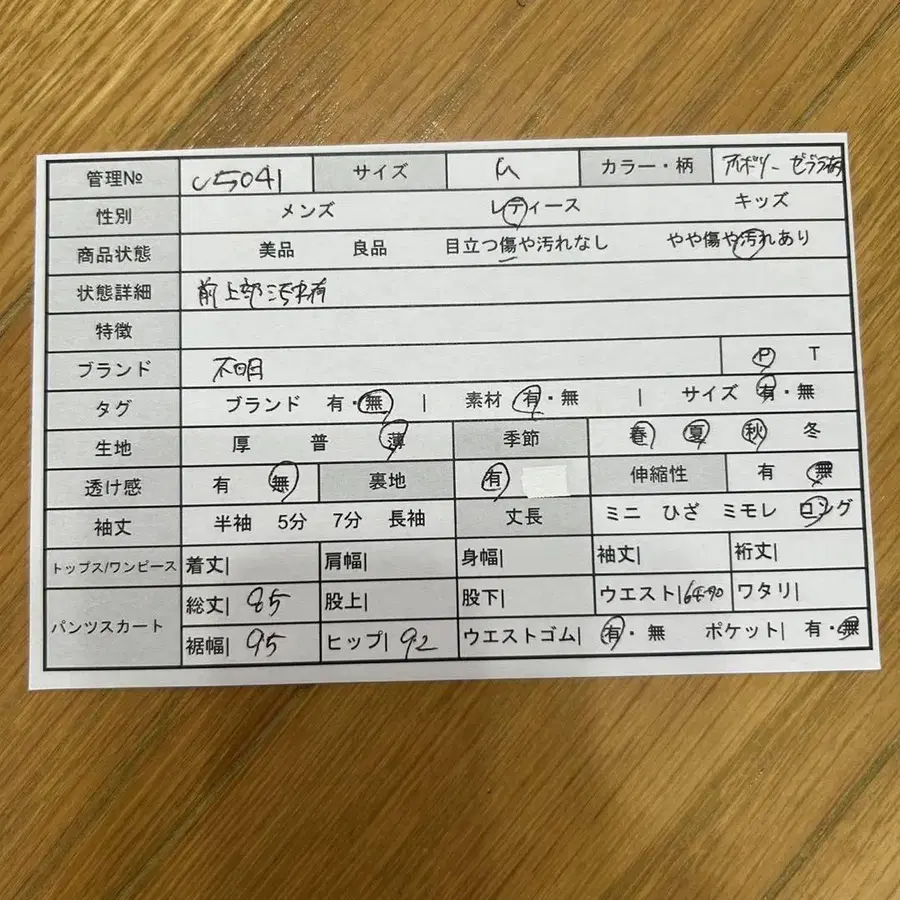 管理№ U5041 サイズ M カラー・柄 アイボリー ゼブラ柄
性別 メンズ レディース キッズ
商品状態 美品 良品 目立つ傷や汚れなし やや傷や汚れあり
状態詳細 前上部汚れ有
特徴
ブランド 不明 P T
タグ ブランド 有・無 | 素材 有・無 | サイズ 有・無
生地 厚 普 薄 季節 春 夏 秋 冬
透け感 有 無 裏地 有 伸縮性 有 無
袖丈 半袖 5分 7分 長袖 丈長 ミニ ひざ ミモレ ロング
トップス/ワンピース 着丈| 肩幅| 身幅| 袖丈| 裄丈|
パンツスカート 総丈| 85 股上| 股下| ウエスト| 64-70 ワタリ|
裾幅| 95 ヒップ| 92 ウエストゴム| 有・無 ポケット| 有・無